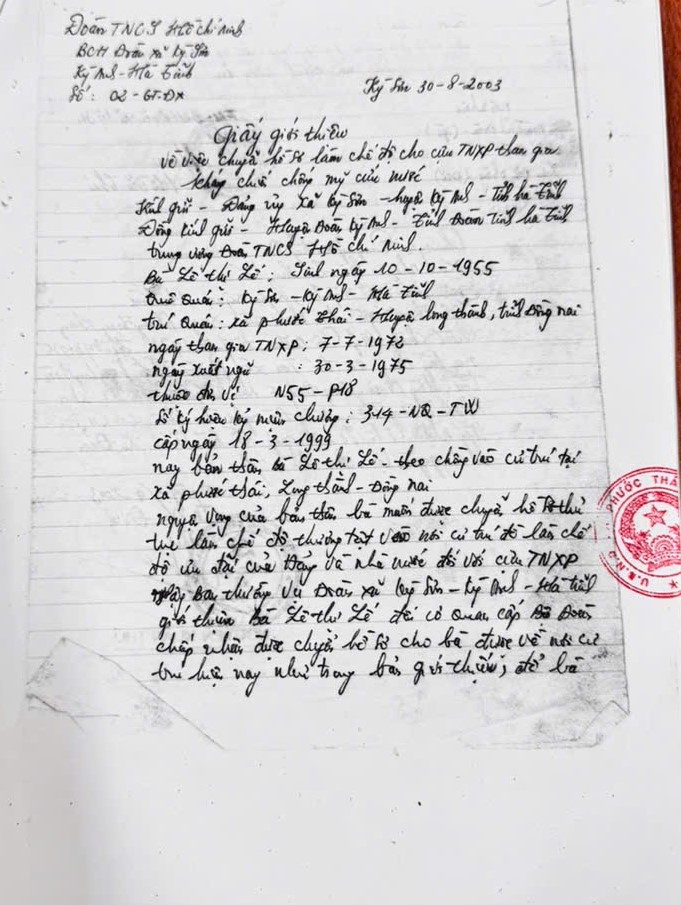 Đoàn TNCS Hồ chí minh
BCH Đoàn xã Kỳ Sơn
Kỳ Anh - Hà Tĩnh
Số: 02 - GT-ĐX
Kỳ Sơn 30-8-2003
Giấy giới thiệu
về việc chuyển hồ sơ làm chế độ cho cựu TNXP tham gia
kháng chiến chống mỹ cứu nước
Kính gửi - Đảng ủy xã Kỳ Sơn - huyện Kỳ Anh - Tỉnh hà Tĩnh
Đồng kính gửi - Huyện Đoàn Kỳ Anh - Tỉnh Đoàn Tỉnh hà Tĩnh
trung ương Đoàn TNCS Hồ chí minh.
Bà Lê thị Lế: Sinh ngày 10-10-1955
quê quán: Kỳ Sơn - Kỳ Anh - Hà Tĩnh
trú quán: xã phước thái - Huyện long thành, tỉnh Đồng nai
ngày tham gia TNXP: 7-7-1972
ngày xuất ngũ : 30-3-1975
thuộc đơn vị N55-P18
Số ký hiệu kỷ niệm chương: 314-NQ-TW
cấp ngày 18-3-1999
nay bản thân bà Lê thị Lế - theo chồng vào cư trú tại
xã phước thái, Long thành - Đồng nai
nguyện vọng của bản thân bà muốn được chuyển hồ sơ thủ
tục làm chế độ thương tật vào nơi cư trú để làm chế
độ ưu đãi của Đảng và nhà nước đối với cựu TNXP
Vậy Ban thường vụ Đoàn xã Kỳ Sơn - Kỳ Anh - Hà tĩnh
giới thiệu Bà Lê thị Lế đến cơ quan cấp Đoàn
chấp nhận được chuyển hồ sơ cho bà được về nơi cư
trú hiện nay như trong bản giới thiệu, để bà
PHƯỚC THÁ
U.B.N.D